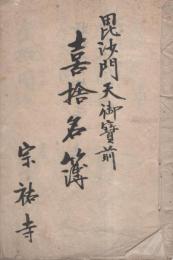 毘沙門天御寳前
喜捨名簿
宗祐寺